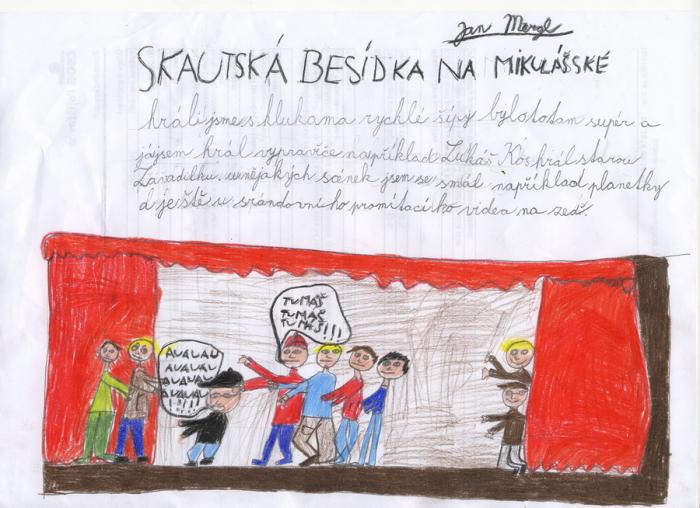 Jan Mergl
SKAUTSKÁ BESÍDKA NA MIKULÁŠSKÉ
hráli jsme s klukama rychlé šípy bylo to tam supér a
já jsem hrál vypravěče například Lukáš Kós hrál starou
Zavadilku. u nějakých scének jsem se smál například planetky
a ještě u srandovního promítacího videa na zeď.
TU MÁŠ
TU MÁŠ
TU MÁŠ!!!
AUAUAU
AUAUAU
AUAUAU
AUAUAU
!!!!!